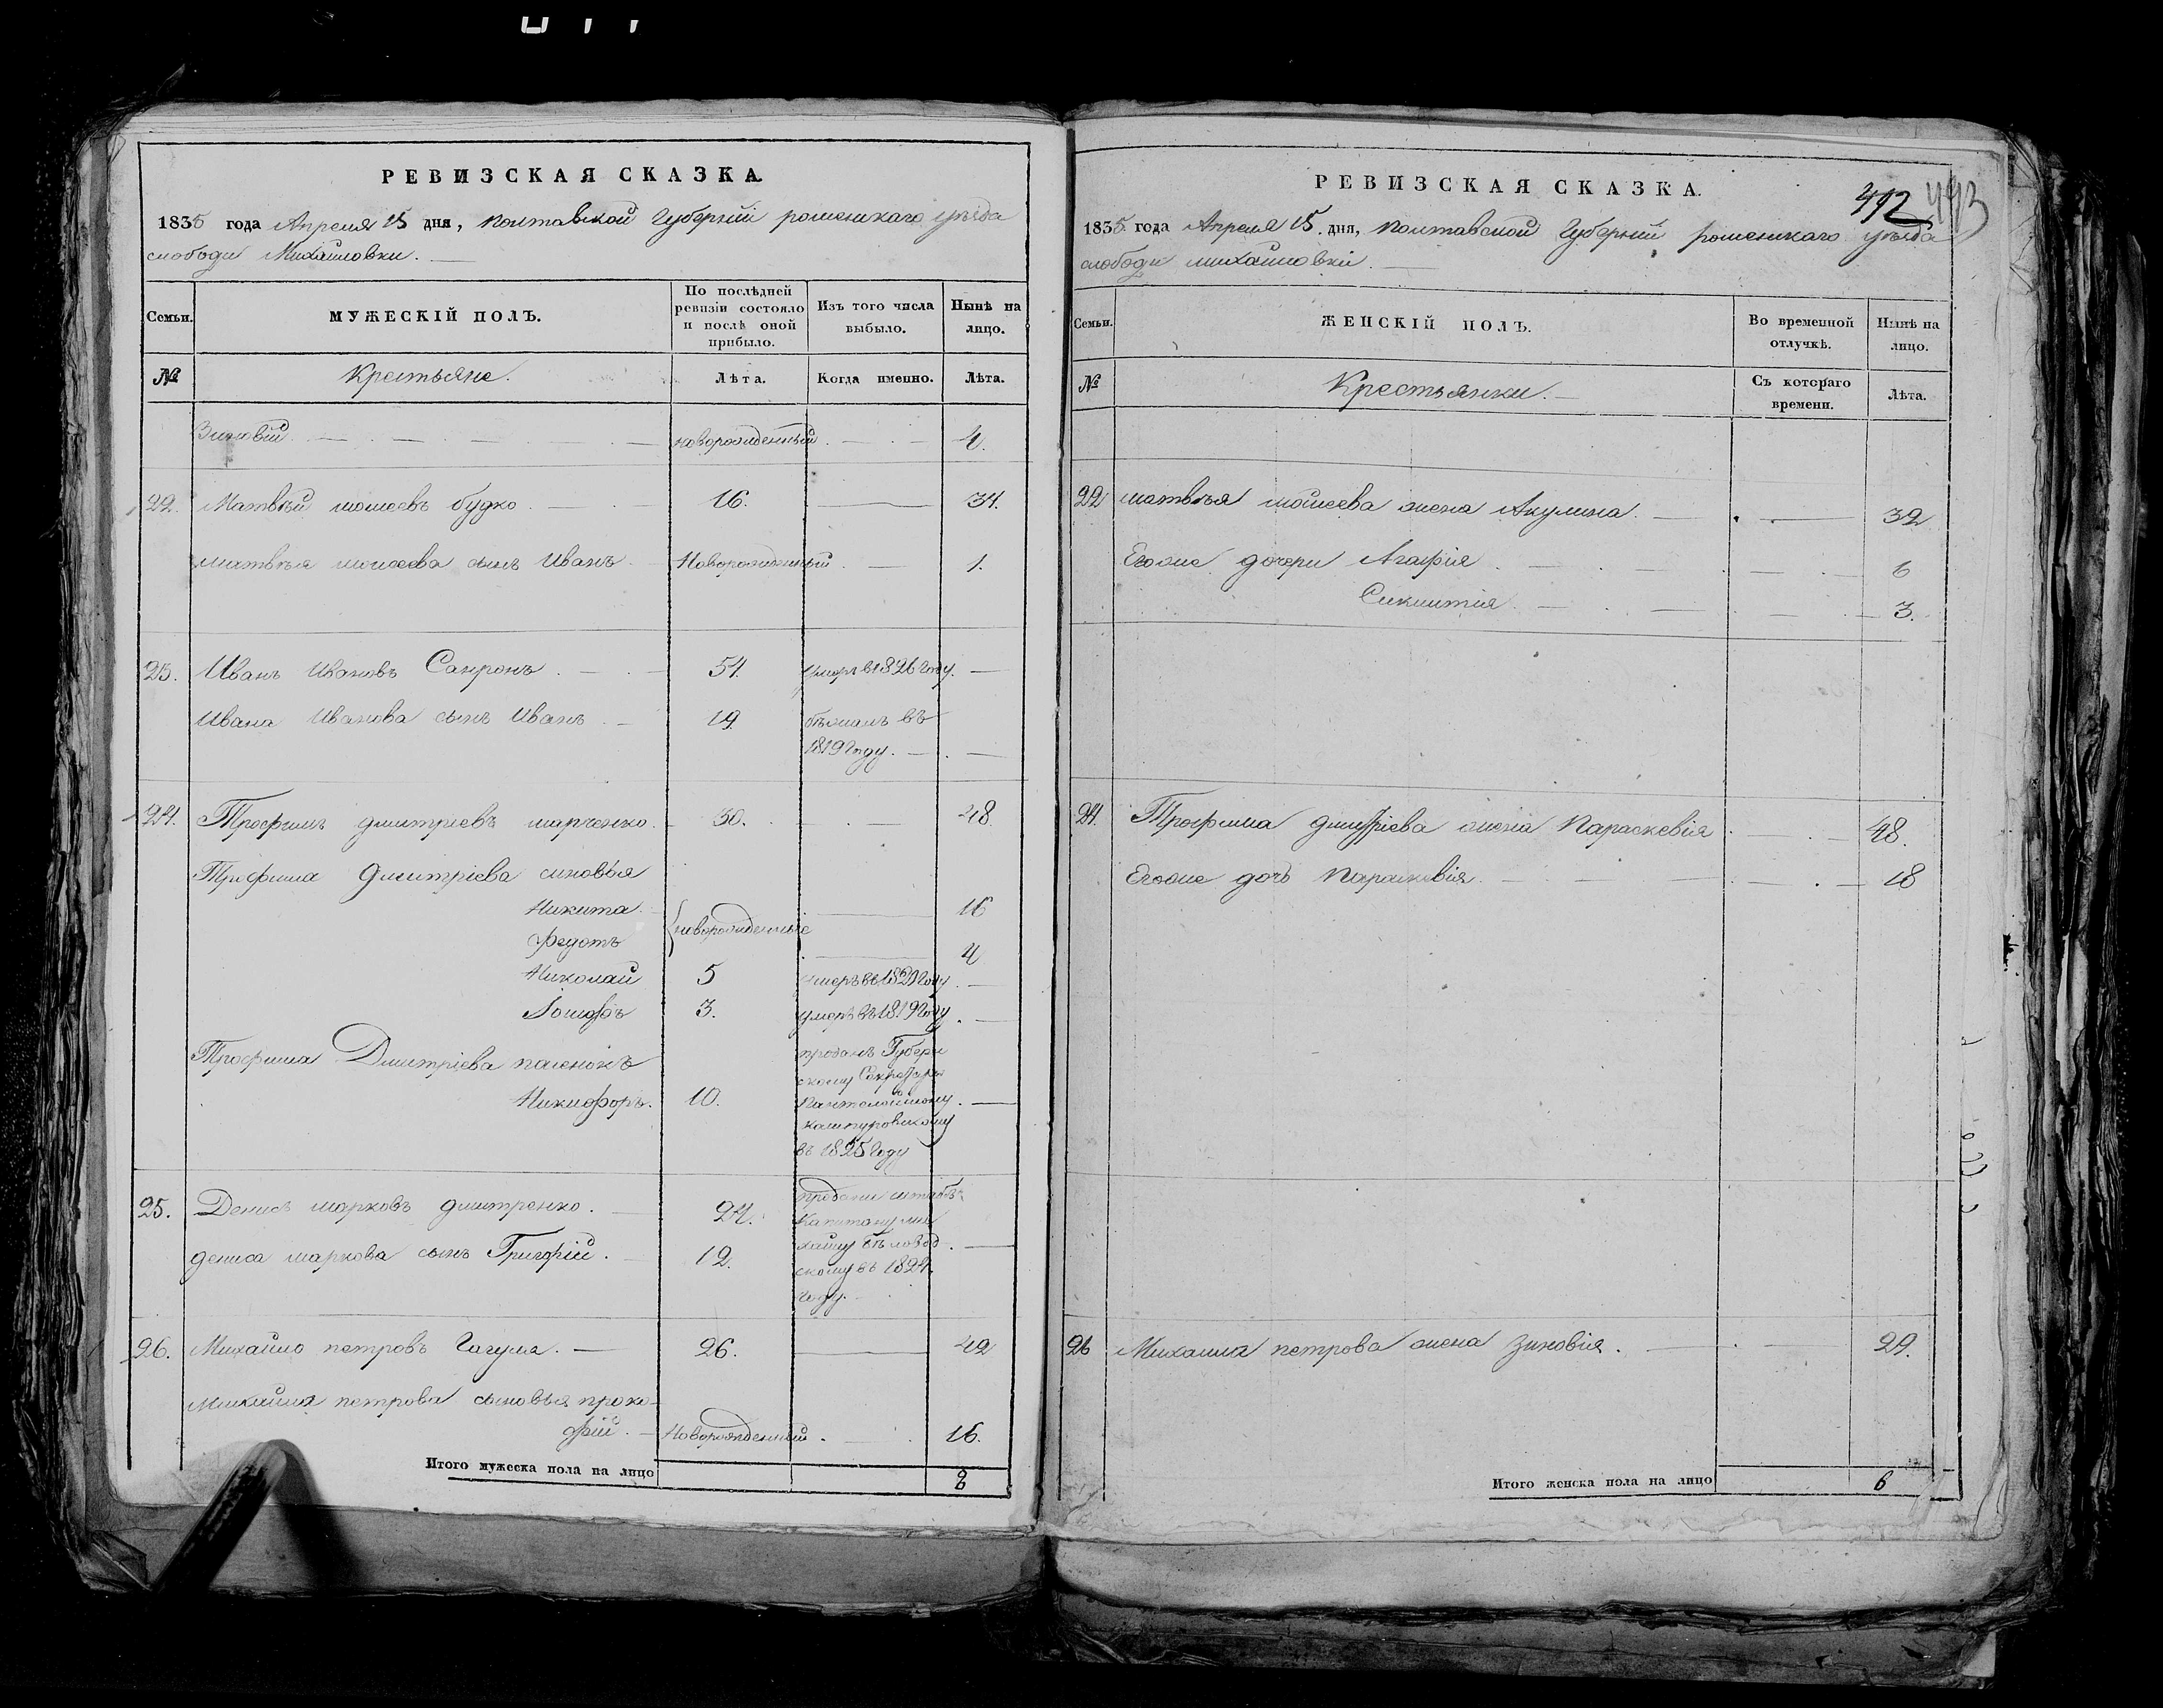 РЕВИЗСКАЯ СКАЗКА.
1835 года Апреля 15 дня, Полтавской Губерніи роменскаго уѣзда
слободы Михайловки.
Семьи.
МУЖЕСКІЙ ПОЛЪ.
По послѣдней
ревизіи состояло
и послѣ оной
прибыло.
Изъ того числа
выбыло.
Нынѣ на
лицо.
№
Крестьяне.
Лѣта.
Когда именно.
Лѣта.
Зиновій новорожденный 4.
22. Матвѣй моисеевъ будко 16. 34.
матвѣя моисеева сынъ Иванъ Новорожденный 1.
23. Иванъ Ивановъ Сапронъ 51. умеръ въ 1826 году.
Ивана Иванова сынъ Иванъ 19 бѣжалъ въ
1819 году.
24. Трофимъ дмитріевъ марченко 30. 48
Трофима Дмитріева сыновья
Никита 16
новорожденные
Федотъ 4
Николай 5 умеръ въ 1820 году
Іосифъ 3. умеръ въ 1819 году
Трофима Дмитріева пасенокъ проданъ Губерн
скому Секретарю
Никифоръ. 10. Пантелеймону
въ 1825 году
25. Денисъ марковъ дмитренко. 24. проданы штабсъ
Капитану ми
дениса маркова сынъ Григорій. 12. хайлу Бѣловод
скому въ 1824.
году.
26. Михайло петровъ Гагула. 26. 42
Михайла петрова сыновья проко
фій. Новорожденный. 16.
Итого мужеска пола на лицо 8
РЕВИЗСКАЯ СКАЗКА.
492 493
1835 года Апреля 15. дня, Полтавской Губерніи роменскаго уѣзда
слободы михайловки.
Семьи.
ЖЕНСКІЙ ПОЛЪ.
Во временной
отлучкѣ.
Нынѣ на
лицо.
№
Крестьянки.
Съ котораго
времени.
Лѣта.
22 матвѣя мойсеева жена Акулина. 32
Егоже дочери Агафія 6
3.
24. Трофима дмитріева жена Параскевія 48.
Егоже дочь Параскевія 18
26 Михайла петрова жена Зиновія. 29.
Итого женска пола на лицо 6